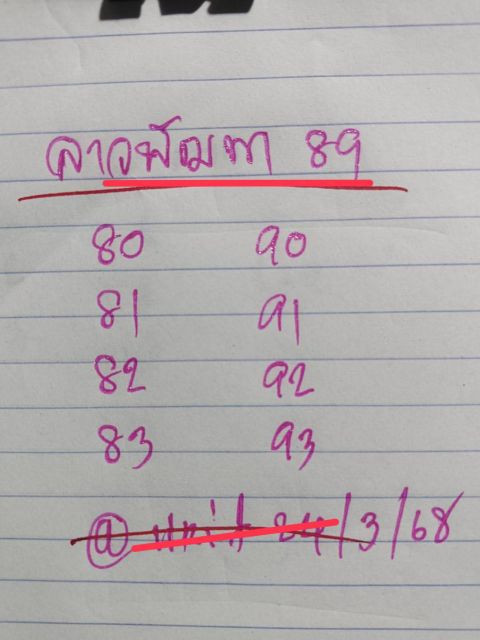 ลาวพัฒนา 89
80 90
81 91
82 92
83 93
@ 24/3/68